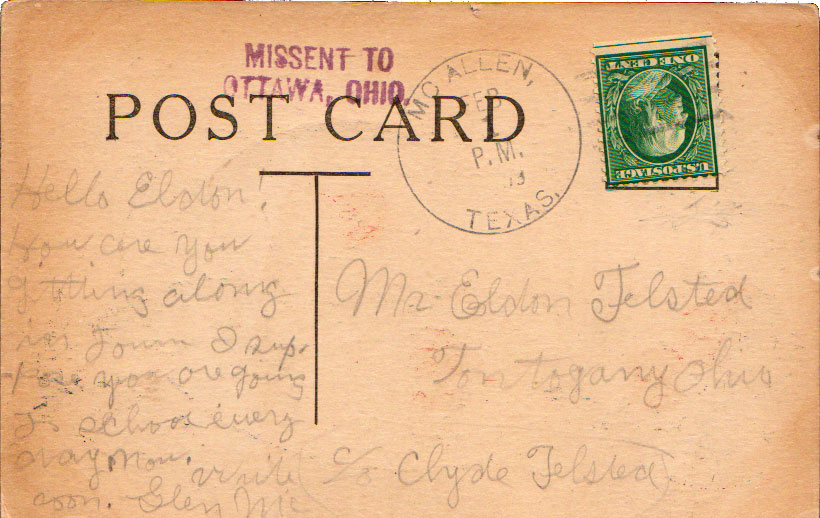 MISSENT TO
OTTAWA, OHIO.
POST CARD
MC ALLEN,
FEB
P.M.
13
TEXAS.
ONE CENT
U.S. POSTAGE
Hello Eldon!
How are you
getting along
in town I sup-
pose you are going
to school every
day now.
write
soon. Glen Mc
Mr Eldon Felsted
Tontogany Ohio
C/o Clyde Felsted